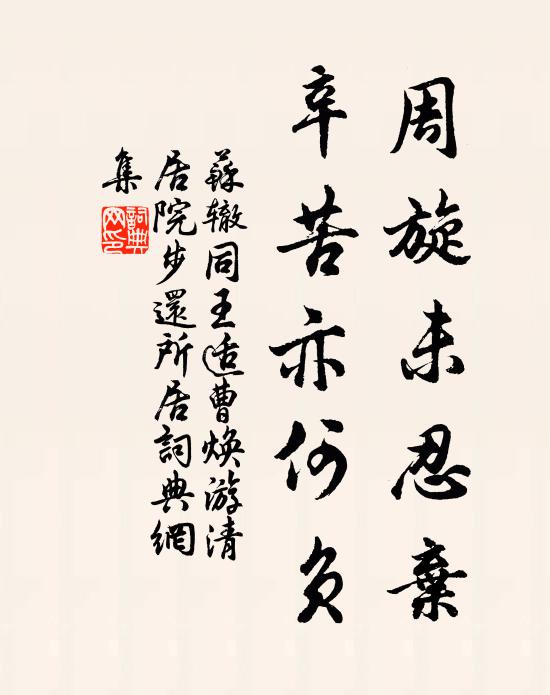 周旋未忍棄
辛苦亦何負
蘇辙同王适曹煥游清
居院步還所居詞典網
集
詞典
网印